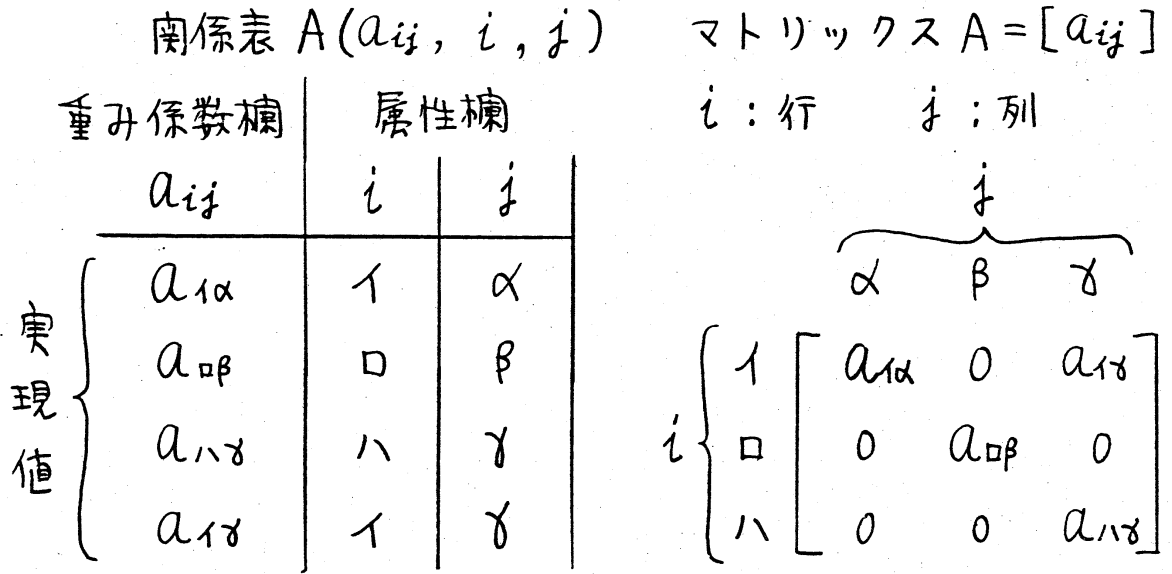 関係表 A(aij, i, j)
重み係数欄 属性欄
aij i j
実現値
aイα イ α
aロβ ロ β
aハγ ハ γ
aイγ イ γ
マトリックス A = [aij]
i : 行 j : 列
j
α β γ
i
イ aイα 0 aイγ
ロ 0 aロβ 0
ハ 0 0 aハγ